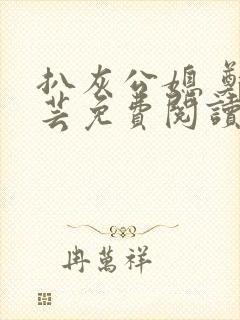 扒灰公媳 鄭
芸免費閱讀
冉萬祥